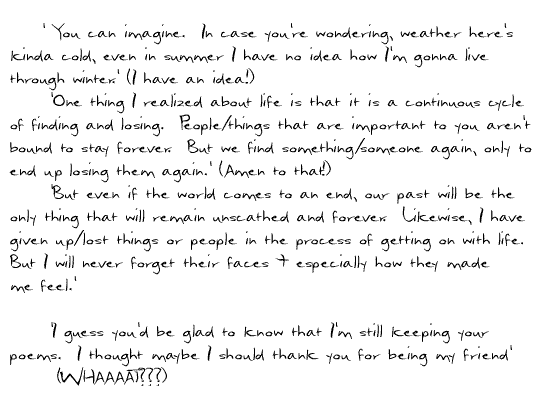 ' You can imagine. In case you're wondering, weather here's
kinda cold, even in summer I have no idea how I'm gonna live
through winter.' (I have an idea!)
'One thing I realized about life is that it is a continuous cycle
of finding and losing. People/things that are important to you aren't
bound to stay forever. But we find something/someone again, only to
end up losing them again.' (Amen to that!)
'But even if the world comes to an end, our past will be the
only thing that will remain unscathed and forever. Likewise, I have
given up/lost things or people in the process of getting on with life.
But I will never forget their faces + especially how they made
me feel.'
'I guess you'd be glad to know that I'm still keeping your
poems. I thought maybe I should thank you for being my friend'
(WHAAAAT???)